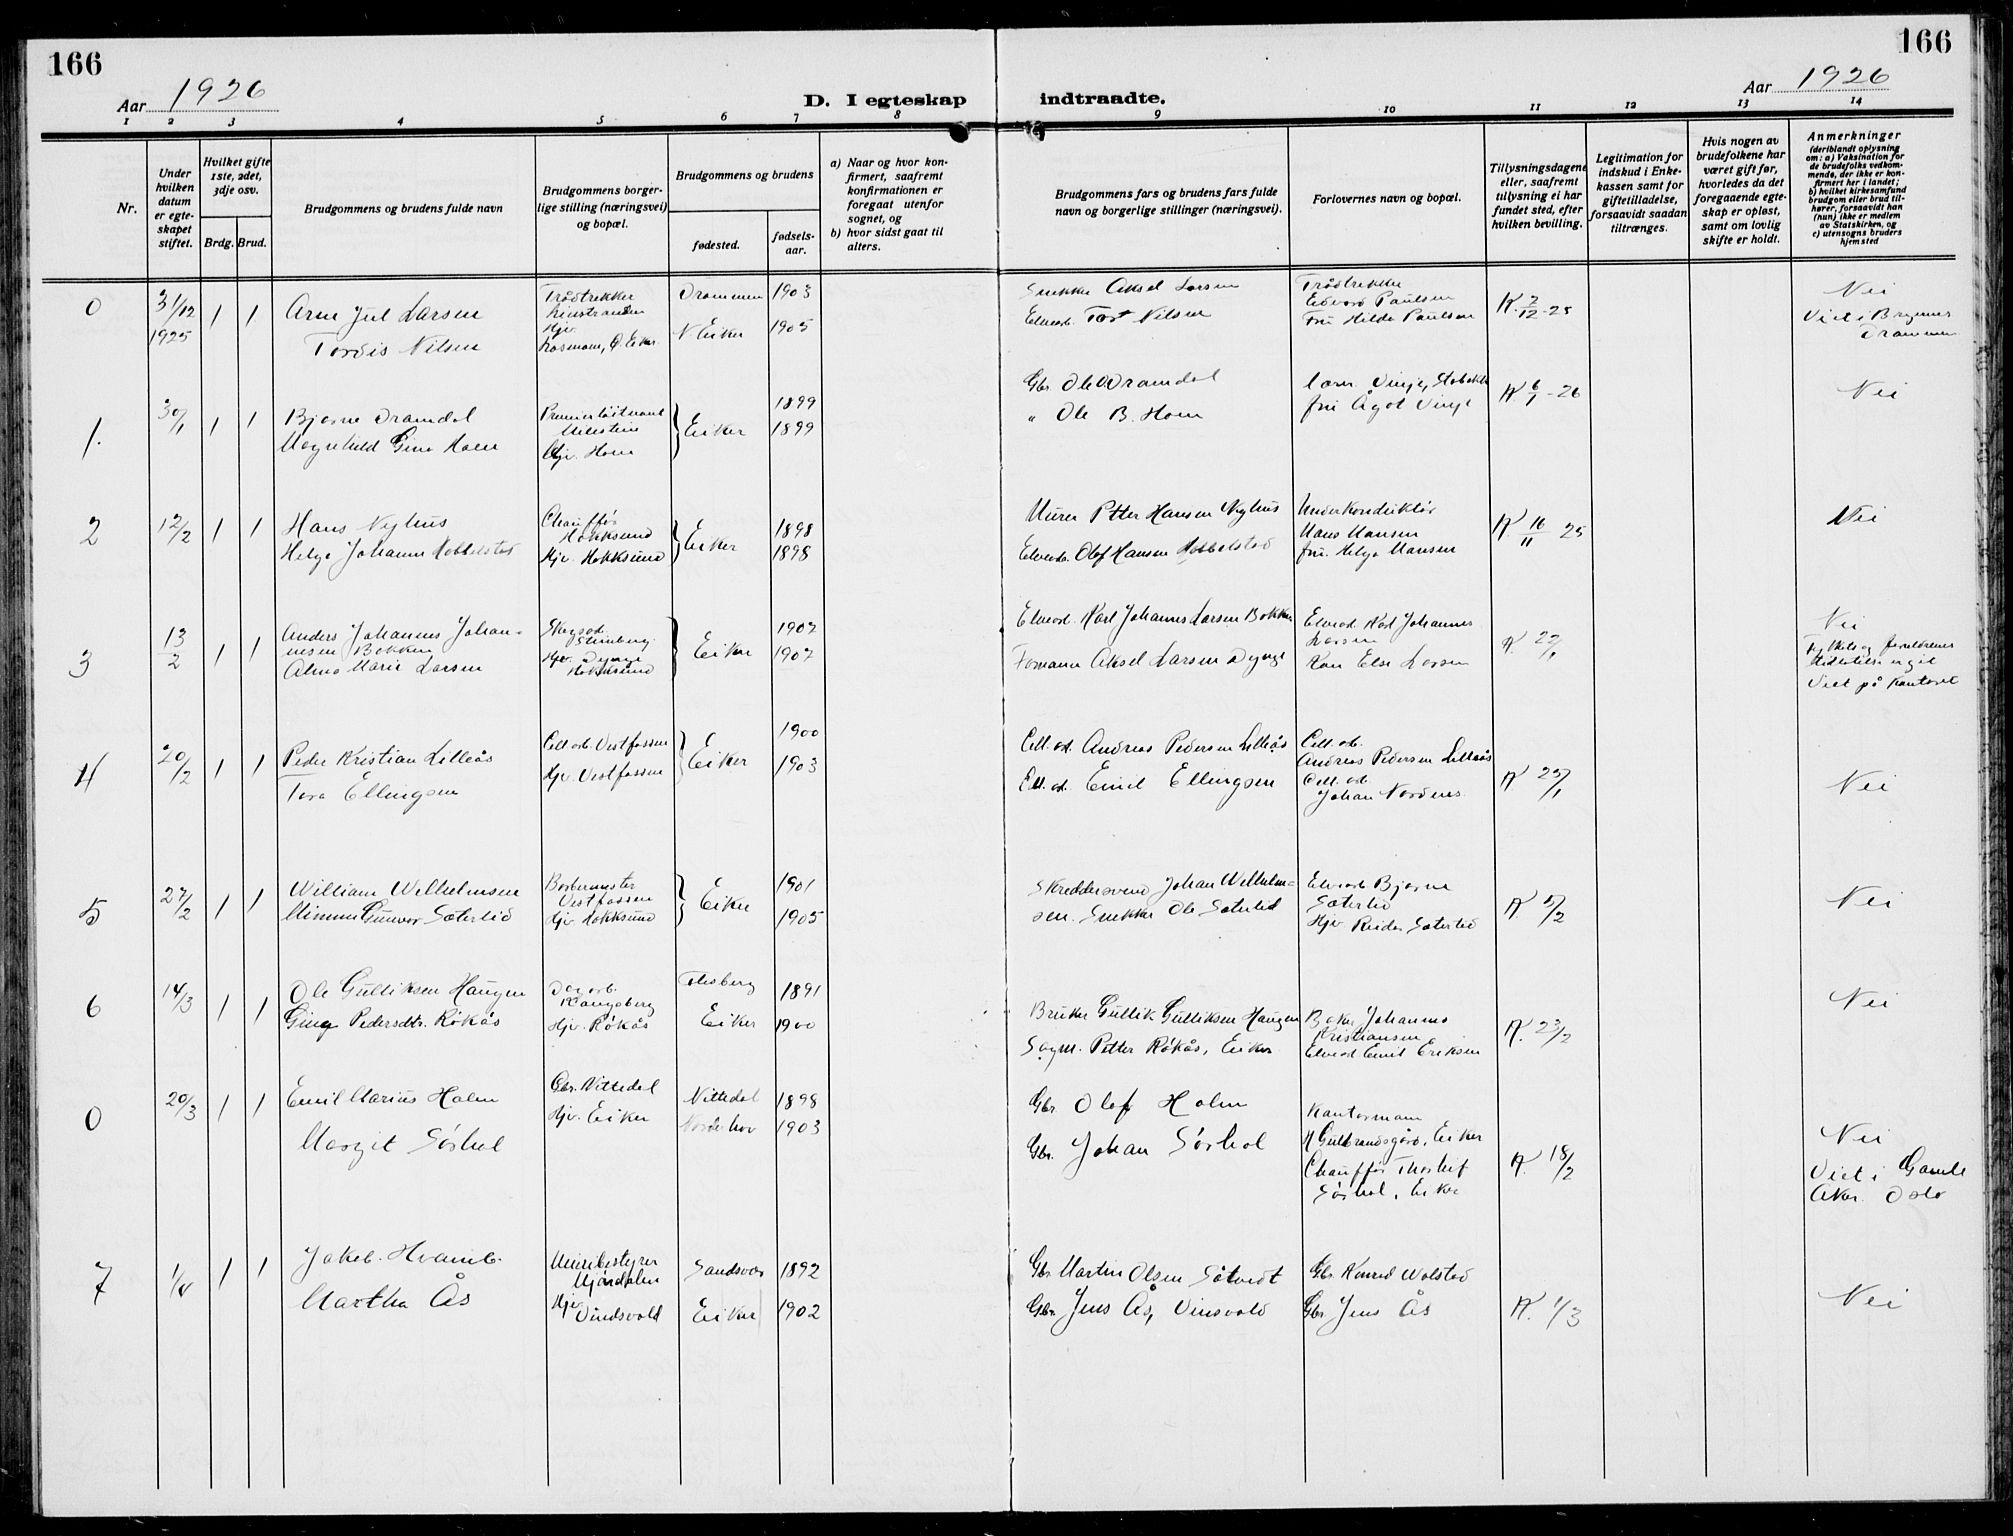 166
166
Aar 1926
D. I egteskap indtraadte.
Aar 1926
1 2 3 4 5 6 7 8 9 10 11 12 13 14
Nr.
Under hvilken datum er egteskapet stiftet.
Hvilket gifte 1ste, 2det, 3dje osv.
Brdg. Brud.
Brudgommens og brudens fulde navn
Brudgommens borgerlige stilling (næringsvei) og bopæl.
Brudgommens og brudens
fødested.
fødselsaar.
a) Naar og hvor konfirmert, saafremt konfirmationen er foregaat utenfor sognet, og
b) hvor sidst gaat til alters.
Brudgommens fars og brudens fars fulde navn og borgerlige stillinger (næringsvei).
Forlovernes navn og bopæl.
Tillysningsdagene eller, saafremt tillysning ei har fundet sted, efter hvilken bevilling.
Legitimation for indskud i Enkekassen samt for giftetilladelse, forsaavidt saadan tiltrænges.
Hvis nogen av brudefolkene har været gift før, hvorledes da det foregaaende egteskap er opløst, samt om lovlig skifte er holdt.
Anmerkninger
(deriblandt oplysning om: a) Vaksination for de brudefolks vedkommende, der ikke er konfirmert her i landet; b) hvilket kirkesamfund brudgom eller brud tilhører, forsaavidt han (hun) ikke er medlem av Statskirken, og c) utensogns bruders hjemsted
0 31/12 1 1 Arne Jul Larsen Trådtrekker Drammen 1903 Snekker Aksel Larsen Trådtrekker K. 2/12-25 Nei
1925 Tordis Nilsen Hjv. N Eiker 1905 Elvearb. Nilsen Edvard Paulsen Viet i Bragernes
Fru Hilda Paulsen Drammen
1. 30/1 1 1 Bjarne Dramdal Premierløitnant Eiker 1899 Gbr. Ole Dramdal Vinje, K. 6/1-26 Nei
Gina Hoen Hjv. Hoen 1899 " Ole B. Hoen fru Ågot Vinje
2 12/2 1 1 Hans Nyhus Chauffør Hokksund Eiker 1898 Murer Petter Hansen Nyhus Underkonduktør K 16/11 25 Nei
Helga Johanne Hobbelstad Hjv. Hokksund 1898 Elvearb. Olaf Hansen Hobbelstad Hans Hansen
fru. Helga Hansen
3 13/2 1 1 Anders Johannes Johan- Eiker 1902 Elvearb. Karl Johannes Larsen Bakken Elvearb Karl Johannes K 22/1 Nei
nesen Bakken Hjv. Dynge 1907 Formann Aksel Larsen Dynge Larsen
Alma Marie Larsen Hokksund Kone Else Larsen
Viet på kontoret
4 20/2 1 1 Peder Kristian Lilleås Cell. arb. Vestfossen Eiker 1900 Cell. arb. Andreas Pedersen Lilleås Cell. arb. K 25/1 Nei
Tora Ellingsen Hjv. Vestfossen 1903 Cell. arb. Emil Ellingsen Andreas Pedersen Lilleås
Cell. arb. Johan Nordnes
5 27/2 1 1 William Wilhelmsen Barbermester Vestfossen Eiker 1901 Skreddersvend Johan Wilhelm- Elvearb Bjarne K. 5/2 Nei
Gunvor Sæterlid Hjv. Hokksund 1905 sen. Snekker Ole Sæterlid Sæterlid
Hjv Sæterlid
6 14/3 1 1 Ole Gulliksen Haugen Dagarb. Kongsberg Flesberg 1891 Bruker Gullik Gulliksen Haugen Baker Johannes K. 23/2 Nei
Gina Pedersdtr. Røkås Hjv. Røkås Eiker 1900 Sagm. Petter Røkås, Eiker Kristiansen
Elvearb Emil Eriksen
0 20/3 1 1 Emil Marius Holm Gbr. Nittedal Nittedal 1898 Gbr Olaf Holm Kontormann K. 18/2 Nei
Margit Sørhol Hjv. Eiker Norderhov 1903 Gbr. Johan Sørhol H Gulbrandsgård, Eiker Viet i Gamle
Chauffør Thorleif Aker Oslo
Sørhol, Eiker
7 1/4 1 1 Jakob Hvamb Meieribestyrer Mjøndalen Sandsvær 1892 Gbr Martin Olsen Søtvedt Gbr Konrad Wolstad K. 1/3 Nei
Martha Ås Hjv Vindsvold Eiker 1902 Gbr Jens Ås, Vinsvold Gbr Jens Ås